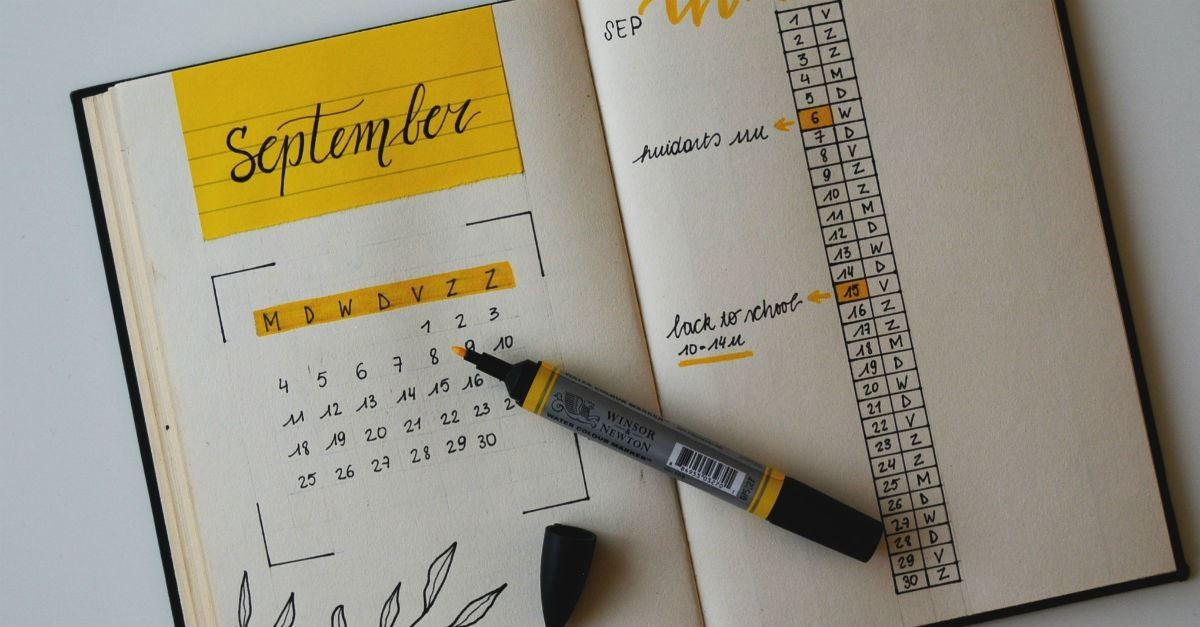 September
M D W D V Z Z
1 2 3
4 5 6 7 8 9 10
11 12 13 14 15 16
18 19 20 21 22 23
25 26 27 28 29 30
SEP
huidarts
back to school
10-14u
1 V
2 Z
3 Z
4 M
5 D
6 W
7 D
8 V
9 Z
10 Z
11 M
12 D
13 W
14 D
15 V
16 Z
17 Z
18 M
19 D
20 W
21 D
22 V
23 Z
24 Z
25 M
26 D
27 W
28 D
29 V
30 Z
WINSOR
&
NEWTON
WATER COLOUR MARKER